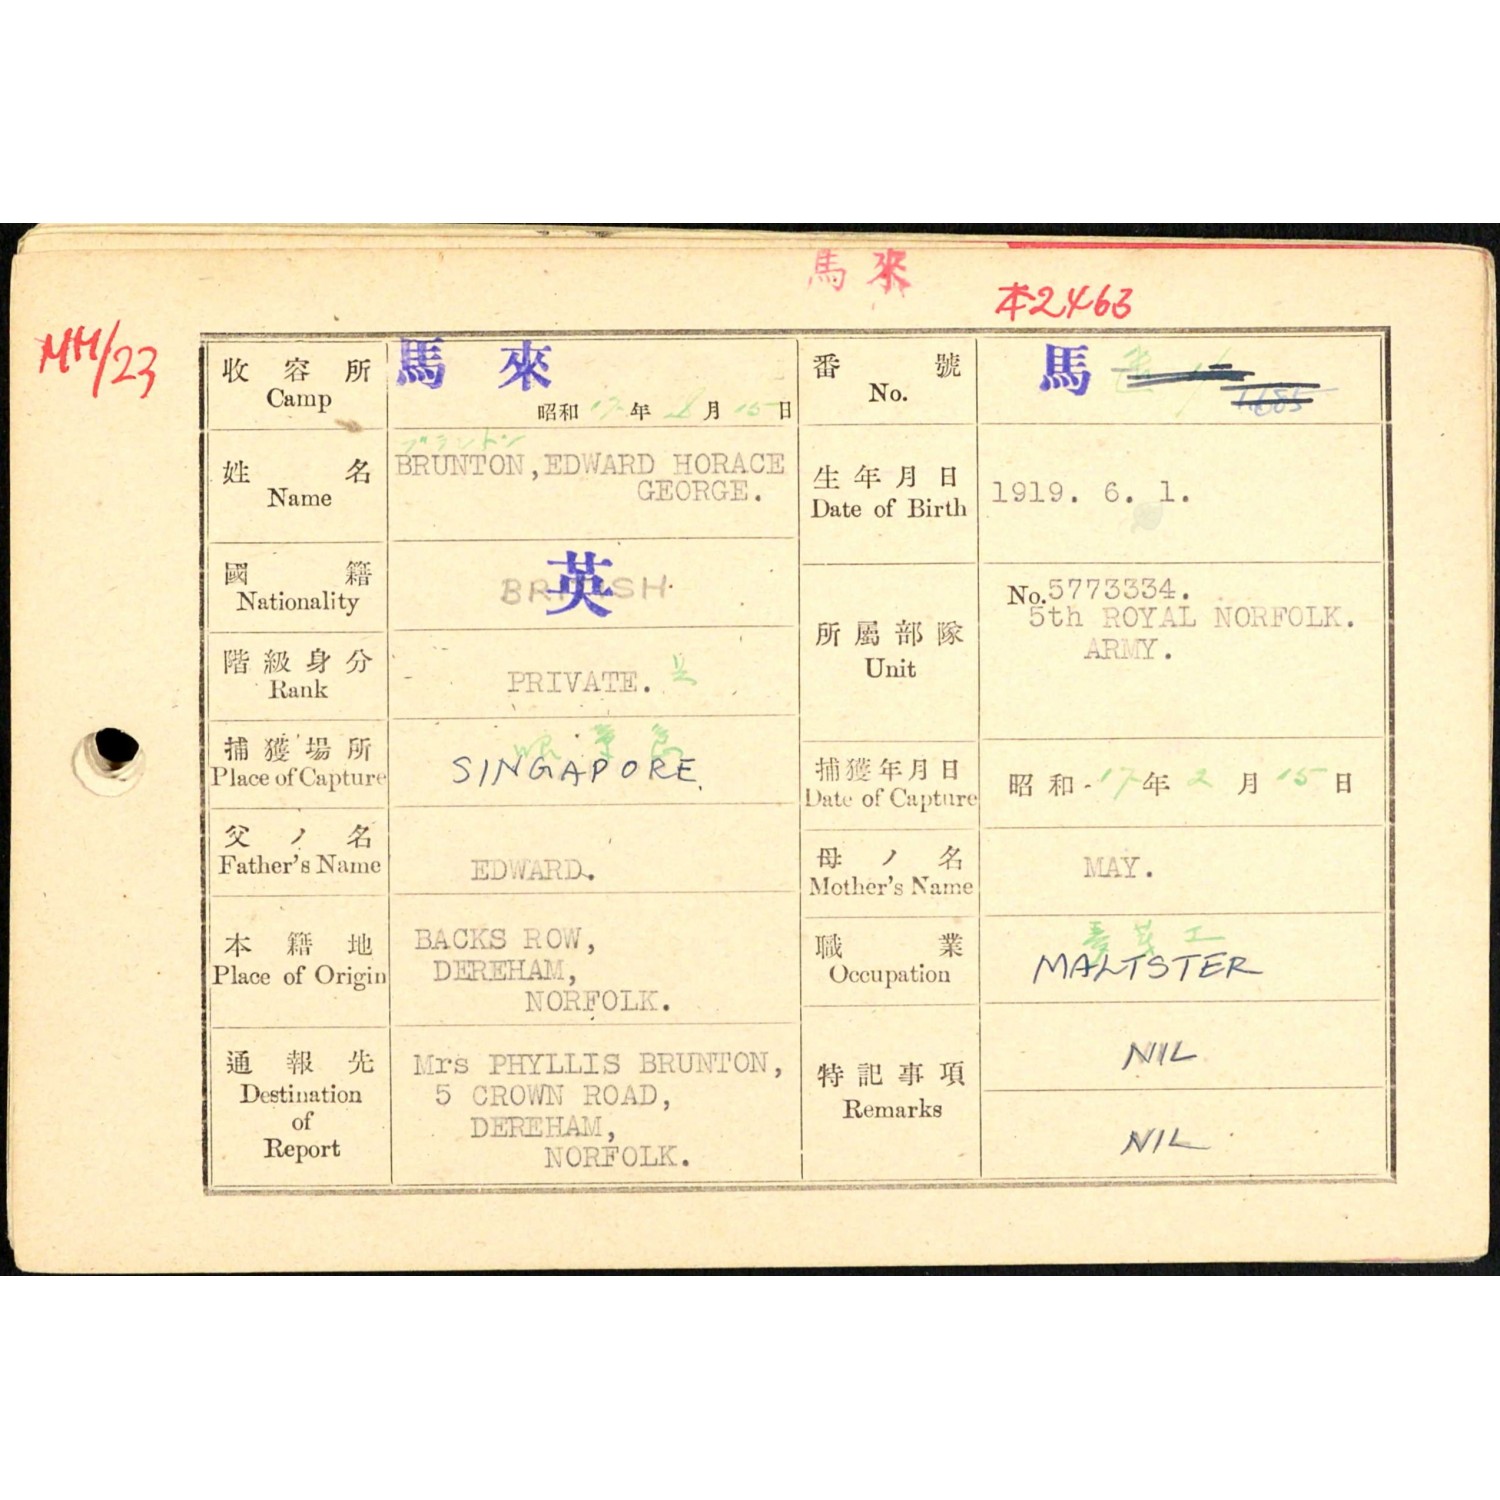 馬來
本2463
MH/23
收容所
Camp
馬來
昭和17年8月15日
番號
No.
馬
1685
姓名
Name
ブラントン
BRUNTON, EDWARD HORACE
GEORGE.
生年月日
Date of Birth
1919. 6. 1.
國籍
Nationality
BRITISH
英
所屬部隊
Unit
No. 5773334.
5th ROYAL NORFOLK.
ARMY.
階級身分
Rank
PRIVATE. 兵
捕獲場所
Place of Capture
SINGAPORE.
捕獲年月日
Date of Capture
昭和17年2月15日
父ノ名
Father's Name
EDWARD.
母ノ名
Mother's Name
MAY.
本籍地
Place of Origin
BACKS ROW,
DEREHAM,
NORFOLK.
職業
Occupation
MALTSTER
通報先
Destination
of
Report
Mrs PHYLLIS BRUNTON,
5 CROWN ROAD,
DEREHAM,
NORFOLK.
特記事項
Remarks
NIL
NIL